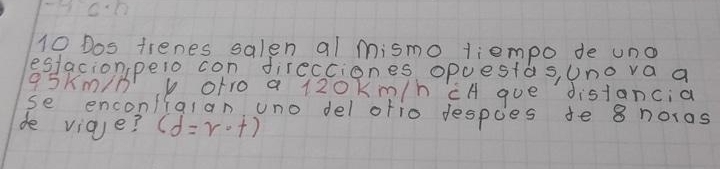 10 Dos trenes salen al mismo tiempo de una
estacion, pero con direcciones opuestas, uno va a
95km/h y otro a 120km/h ¿A que distancia
se encontraran uno del otro despues de 8 horas
de viaje? (d=v·t)